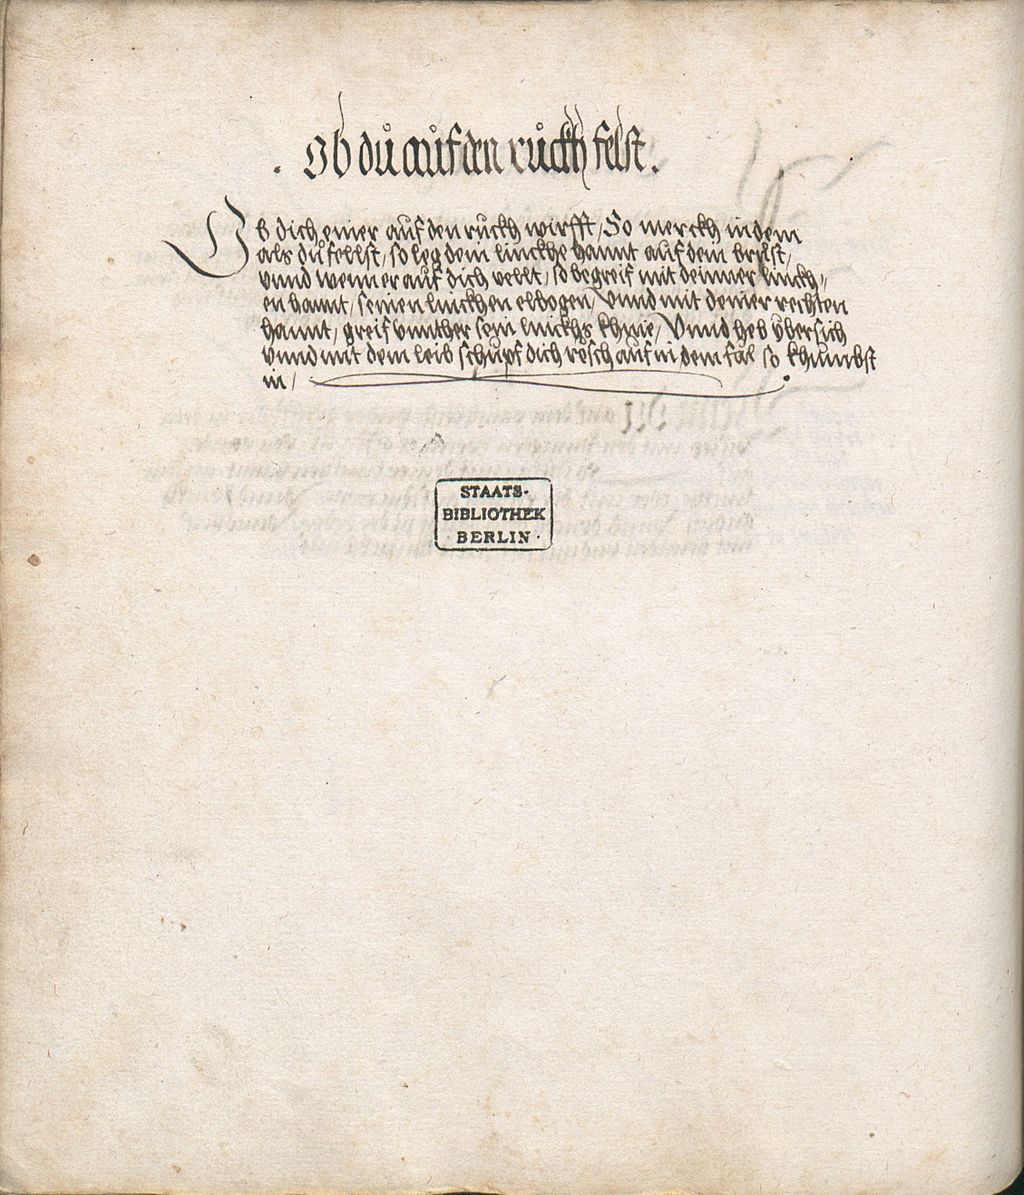 . Ob dů aůf den růckh felst .
Ob dich einer auf den ruckh wirfft / So merckh in dem
als dů fellst / so leg dein linckhe hannt auf dein brust /
vnnd wenn er auf dich vellt / so begreif mit deinner linckh-
en hannt / seinen linckhen elbogen / Vnnd mit deiner rechten
hannt / greif vnnther sein linckhs khnie / Vnnd heb vbersich
vnnd mit dem leib schupf dich rösch auf in dem fal so khumbst
in /
STAATS-
BIBLIOTHEK
· BERLIN ·